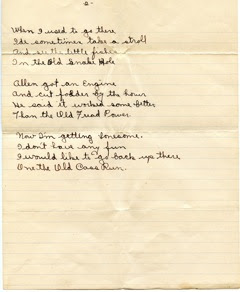 2-
When I used to go there
I'de sometimes take a stroll
And see the little fishes
In the Old Snake Hole
Allen got an Engine
And cut fodder by the hour
He said it worked some better
Than the Old Tread Power
Now I'm getting lonesome.
I don't have any fun
I would like to go back up there
One the Old Cass Run.